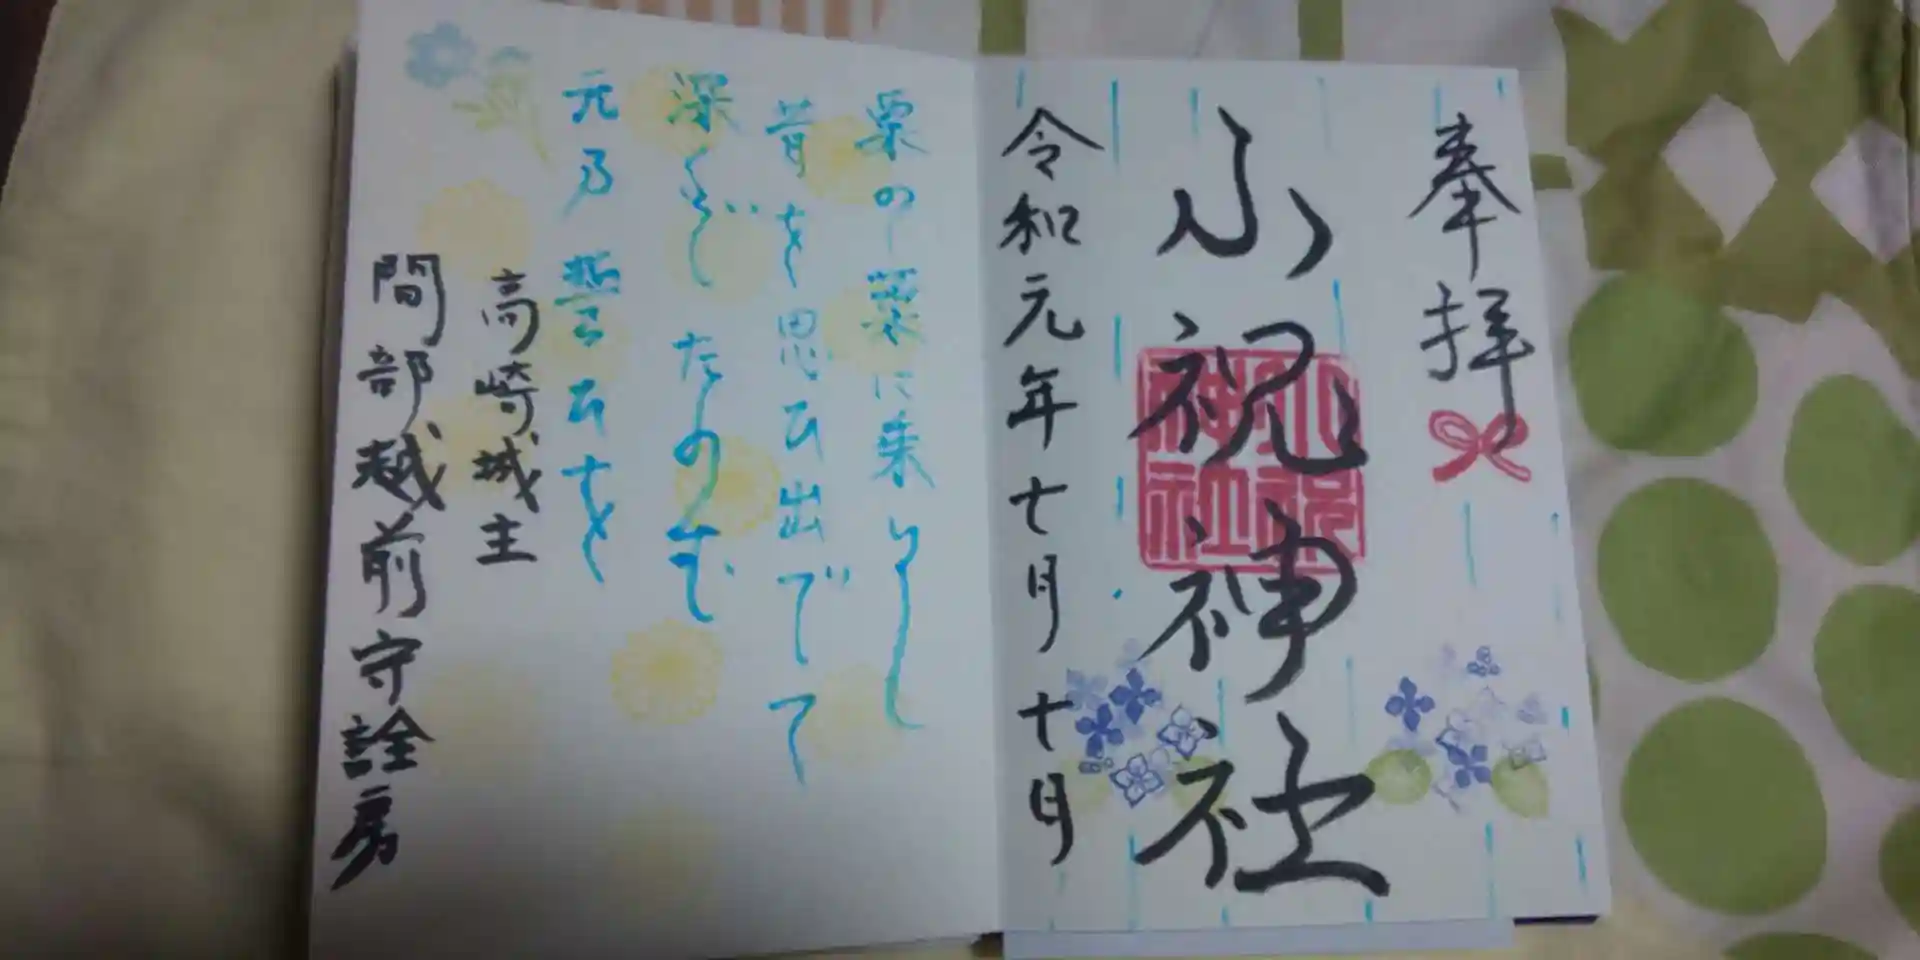 奉拝
小祝神社
小祝
神社
令和元年七月十日
の に来りし
昔を思ひ出でて
深くぞたのむ
元乃誓ひを
高崎城主
間部越前守詮房